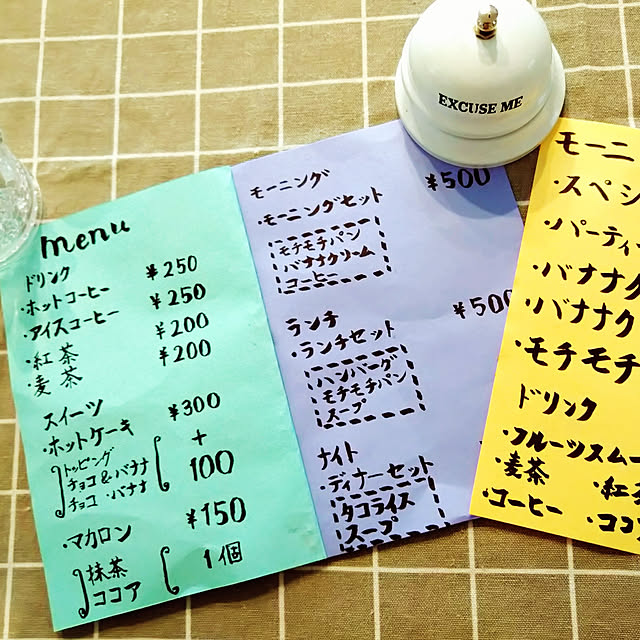 EXCUSE ME
menu
ドリンク
・ホットコーヒー ¥250
・アイスコーヒー ¥250
・紅茶 ¥200
・麦茶 ¥200
スイーツ
・ホットケーキ ¥300
トッピング +
チョコ&バナナ 100
チョコ・バナナ
・マカロン ¥150
抹茶 1個
ココア
モーニング
・モーニングセット ¥500
モチモチパン
バナナクリーム
コーヒー
ランチ
・ランチセット ¥500
ハンバーグ
モチモチパン
スープ
ナイト
・ディナーセット
タコライス
スープ
モーニ
・スペシ
・パーティー
・バナナク
・バナナク
・モチモチ
ドリンク
・フルーツスムー
・麦茶 ・紅
・コーヒー ・ココ